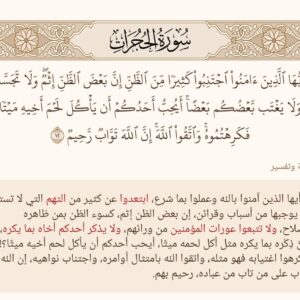 سُورَةُ الحُجُرَاتِ
يُّهَا ٱلَّذِينَ ءَامَنُوا۟ ٱجْتَنِبُوا۟ كَثِيرًا مِّنَ ٱلظَّنِّ إِنَّ بَعْضَ ٱلظَّنِّ إِثْمٌ ۖ وَلَا تَجَسَّ
وَلَا يَغْتَب بَّعْضُكُم بَعْضًا ۚ أَيُحِبُّ أَحَدُكُمْ أَن يَأْكُلَ لَحْمَ أَخِيهِ مَيْتًا
فَكَرِهْتُمُوهُ ۚ وَٱتَّقُوا۟ ٱللَّهَ ۚ إِنَّ ٱللَّهَ تَوَّابٌ رَّحِيمٌ ١٢
ة وتفسير
أيها الذين آمنوا بالله وعملوا بما شرع، ابتعدوا عن كثير من التهم التي لا تست
يوجبها من أسباب وقرائن، إن بعض الظن إثم، كسوء الظن بمن ظاهره
صلاح، ولا تتبعوا عورات المؤمنين من ورائهم، ولا يذكر أحدكم أخاه بما يكره،
نّ ذِكْره بما يكره مثل أكل لحمه ميتًا، أيحب أحدكم أن يأكل لحم أخيه ميتًا؟!
كرهوا اغتيابه فهو مثله، واتقوا الله بامتثال أوامره، واجتناب نواهيه، إن الله
اب على من تاب من عباده، رحيم بهم.